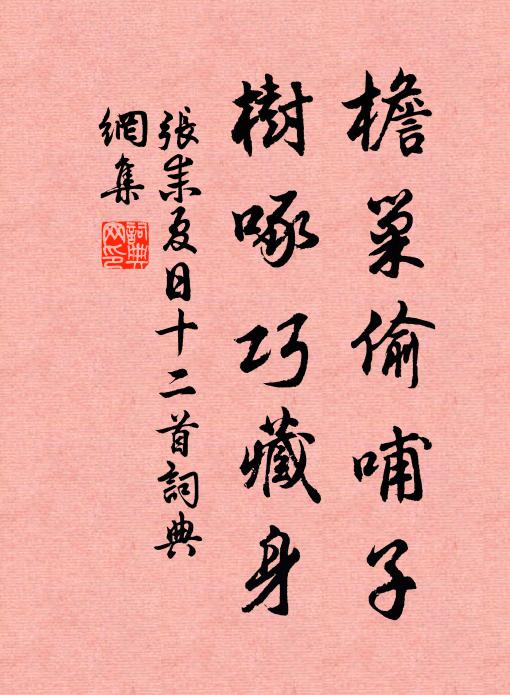 檐巢偷哺子
樹啄巧藏身
張耒夏日十二首詞典
網集
詞典
网印